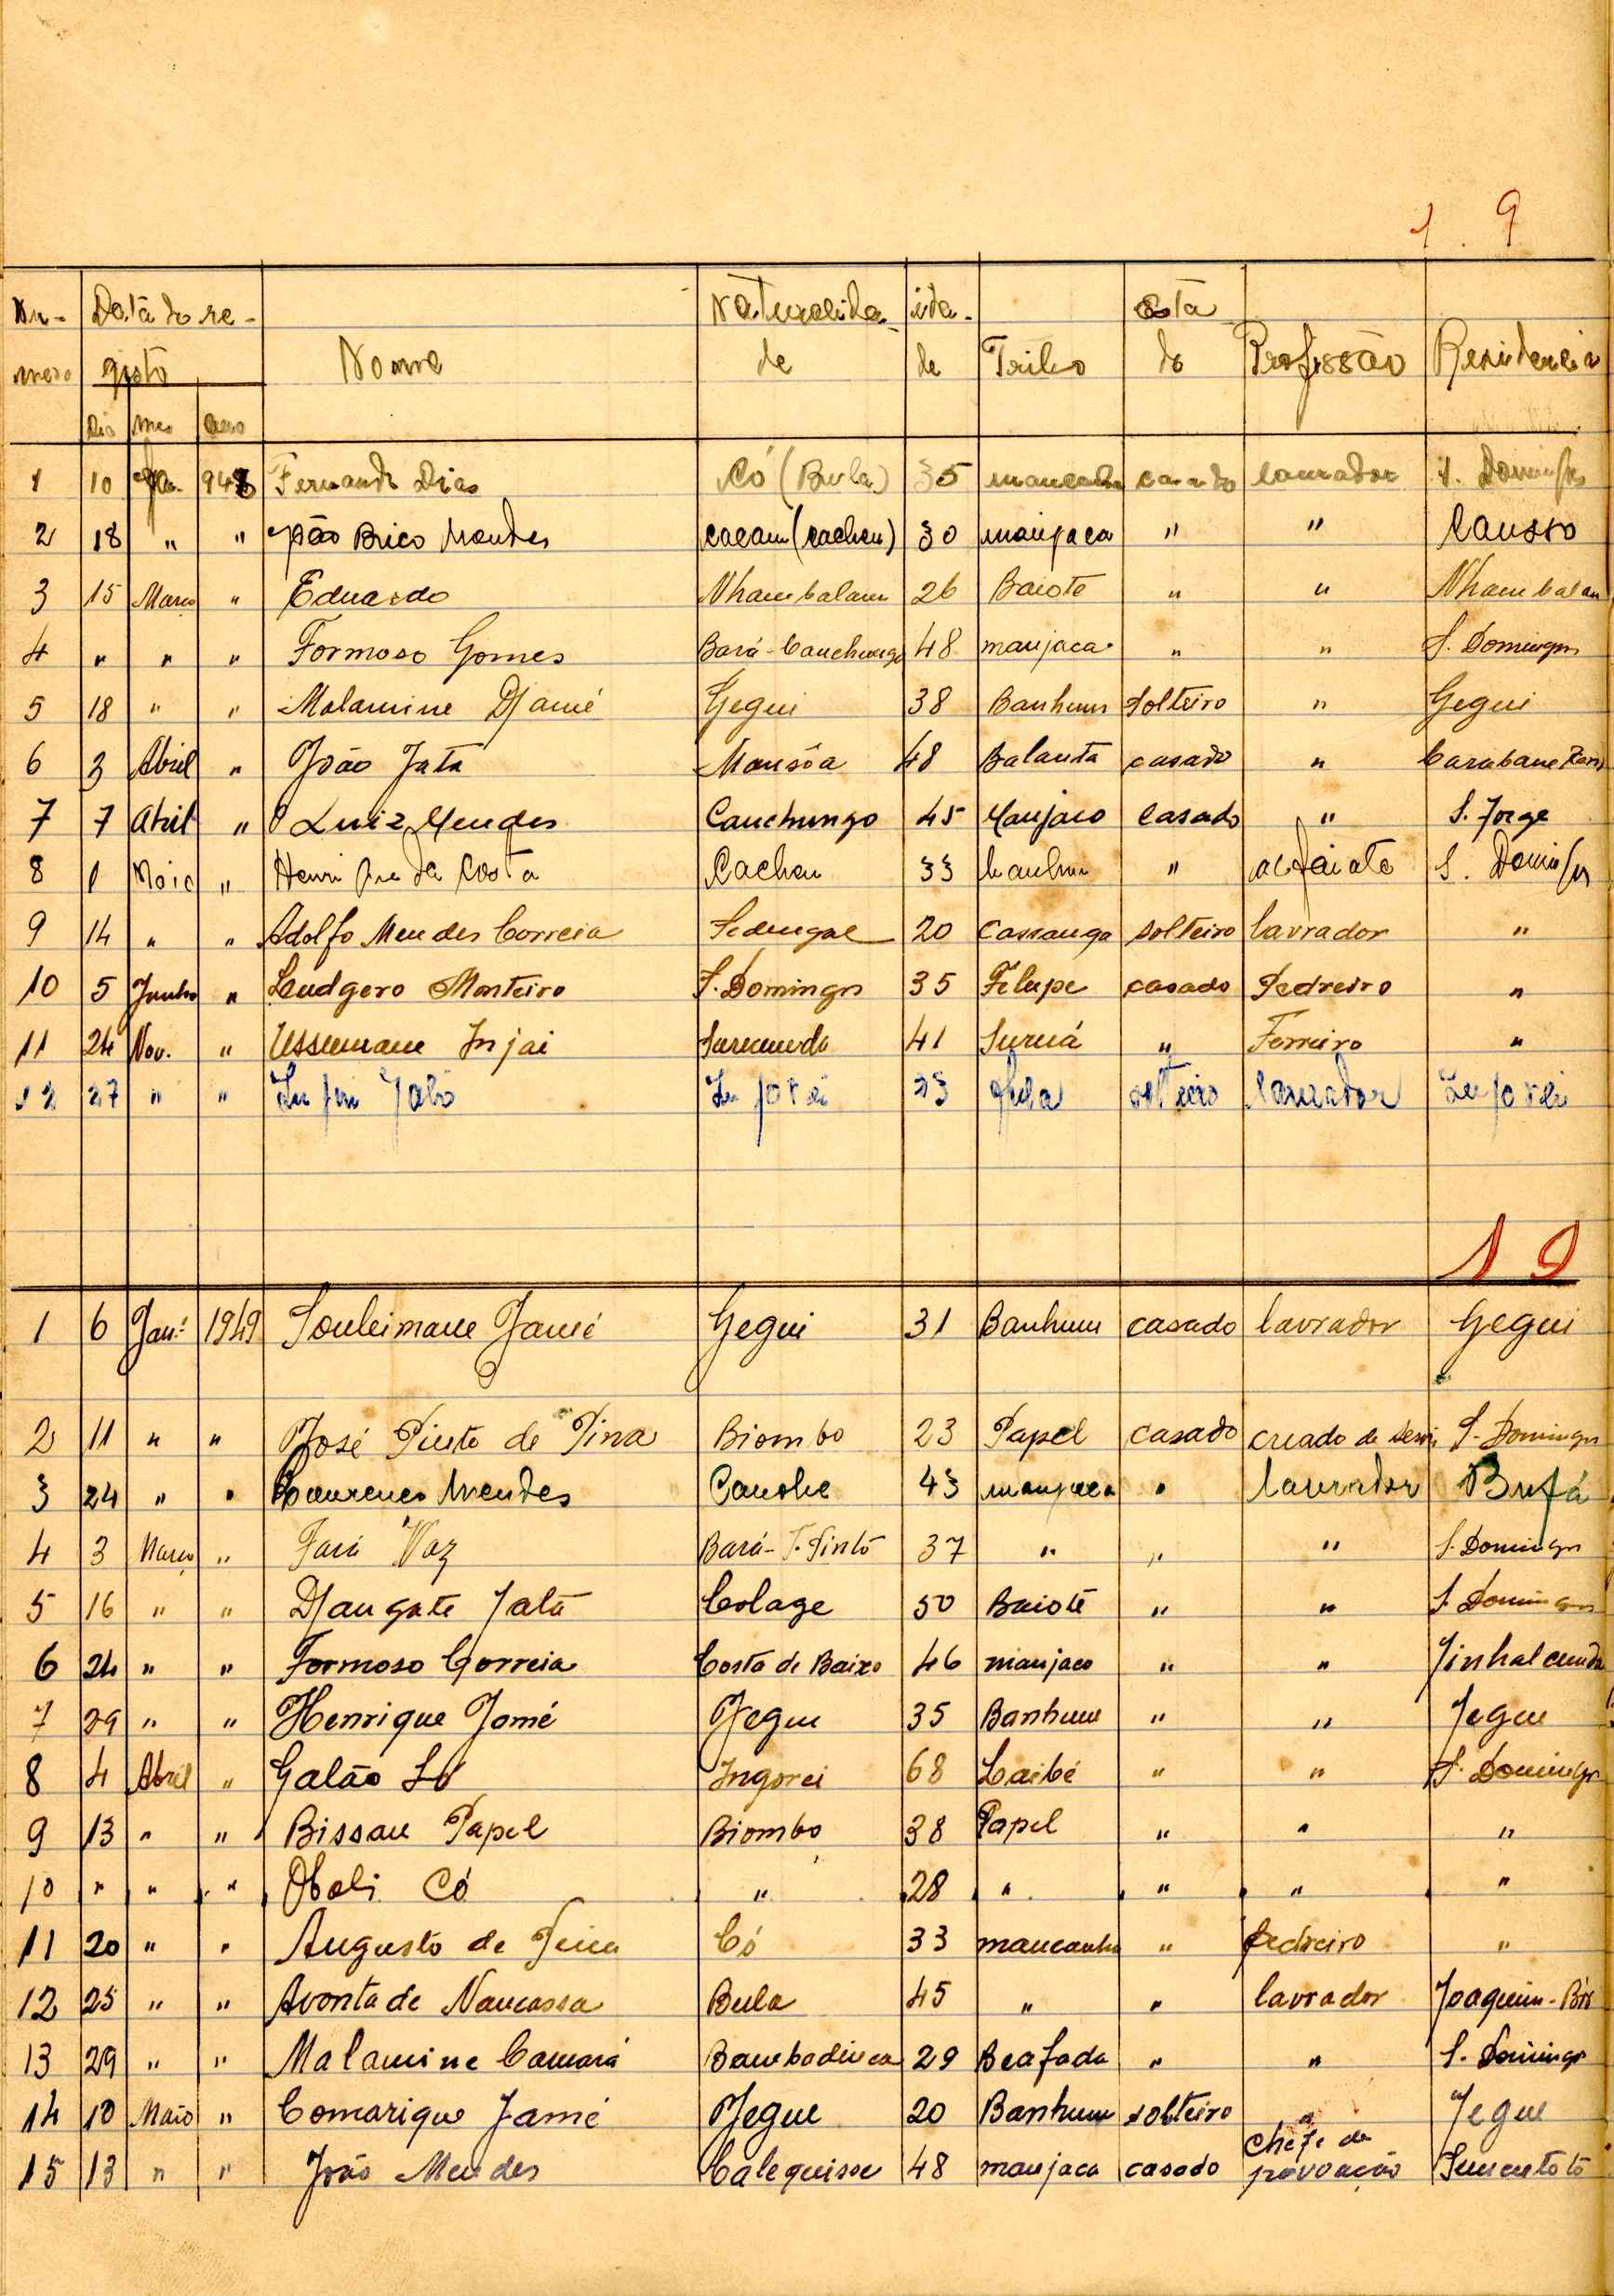 1 9
Nu- Data do re- Naturalida- ida- Esta
mero gisto Nome de de Tribo do Profissão Residencia
Dia Mes Ano
1 10 Jan. 948 Fernando Dias Có (Bula) 35 mancanha casado lavrador S. Domingos
2 18 " " João Brico Mendes cacam (cacheu) 30 manjaca " " Causso
3 15 Março " Eduardo Nhambalam 26 Baiote " " Nhambalam
4 " " " Formoso Gomes Bará-Canchungo 48 manjaca " " S. Domingos
5 18 " " Malamine Djamé Gegui 38 Banhum solteiro " Gegui
6 3 Abril " João Jata Mansôa 48 Balanta casado " Carabane
7 7 Abril " Luiz Mendes Canchungo 45 Manjaco Casado " S. Jorge
8 1 Maio " Henri da Costa Cacheu 33 banhum " alfaiate S. Domingos
9 14 " " Adolfo Mendes Correia Sedengal 20 Cassanga solteiro lavrador "
10 5 Junho " Leudgero Monteiro S. Domingos 35 Felupe casado Pedreiro "
11 24 Nov. " Ussumane Injai 41 Suruá " Ferreiro "
12 27 " " 23 fula solteiro lavrador
1 9
1 6 Janº 1949 Souleimane Jamé Gegui 31 Banhum casado lavrador Gegui
2 11 " " José Pinto de Pina Biombo 23 Papel casado creado de servi S. Domingos
3 24 " " Lourenço Mendes Canohe 43 manjaca " lavrador Bufá
4 3 Março " Fará Vaz Bará-T. Pinto 37 " " " S. Domingos
5 16 " " Djangate Jatá Colage 50 Baiote " " S. Domingos
6 24 " " Formoso Correia Costa de Baixo 46 manjaco " " Jinhalcunda
7 29 " " Henrique Jamé Jegue 35 Banhum " " Jegue
8 4 Abril " Galão Só Ingorei 68 Saibé " " S. Domingos
9 13 " " Bissau Papel Biombo 38 Papel " " "
10 " " " Obali Có " 28 " " " "
11 20 " " Augusto de Pina Có 33 mancanha " Pedreiro "
12 25 " " Avontade Nancassa Bula 45 " " lavrador Joaquim-Bri
13 29 " " Malamine Camará Bambadinca 29 Beafada " " S. Domingos
14 10 Maio " Comarique Jamé Jegue 20 Banhum solteiro " Jegue
15 13 " " João Mendes Calequisse 48 manjaca casado Chefe de povoação Sumentoto